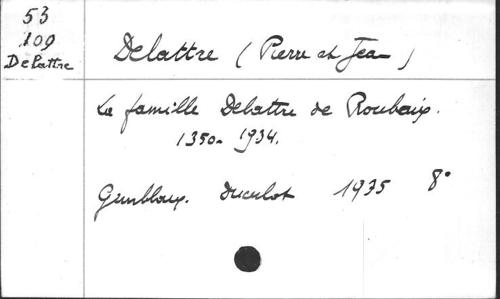 53
109
Delattre
Delattre (Pierre et Jean)
La famille Delattre de Roubaix.
1350-1934.
Gembloux. Duculot 1935 8°